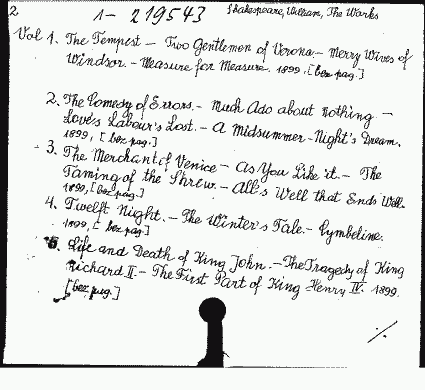 2
1- 219543
Shakespeare, William, The Works
Vol 1. The Tempest - Two Gentlemen of Verona - Merry Wives of
Windsor - Measure for Measure. 1899, [bez pag.]
2. The Comedy of Errors. - Much Ado about nothing -
Love's Labour's Lost. - A Midsummer-Night's Dream.
1899, [bez pag.]
3. The Merchant of Venice - As You Like it. - The
Taming of the Shrew. - All's Well that Ends Well.
1899, [bez pag.]
4. Twelft Night. - The Winter's Tale. - Cymbeline.
1899, [bez pag.]
5. Life and Death of King John. - The Tragedy of King
Richard II. - The First Part of King Henry IV. 1899.
[bez pag.]